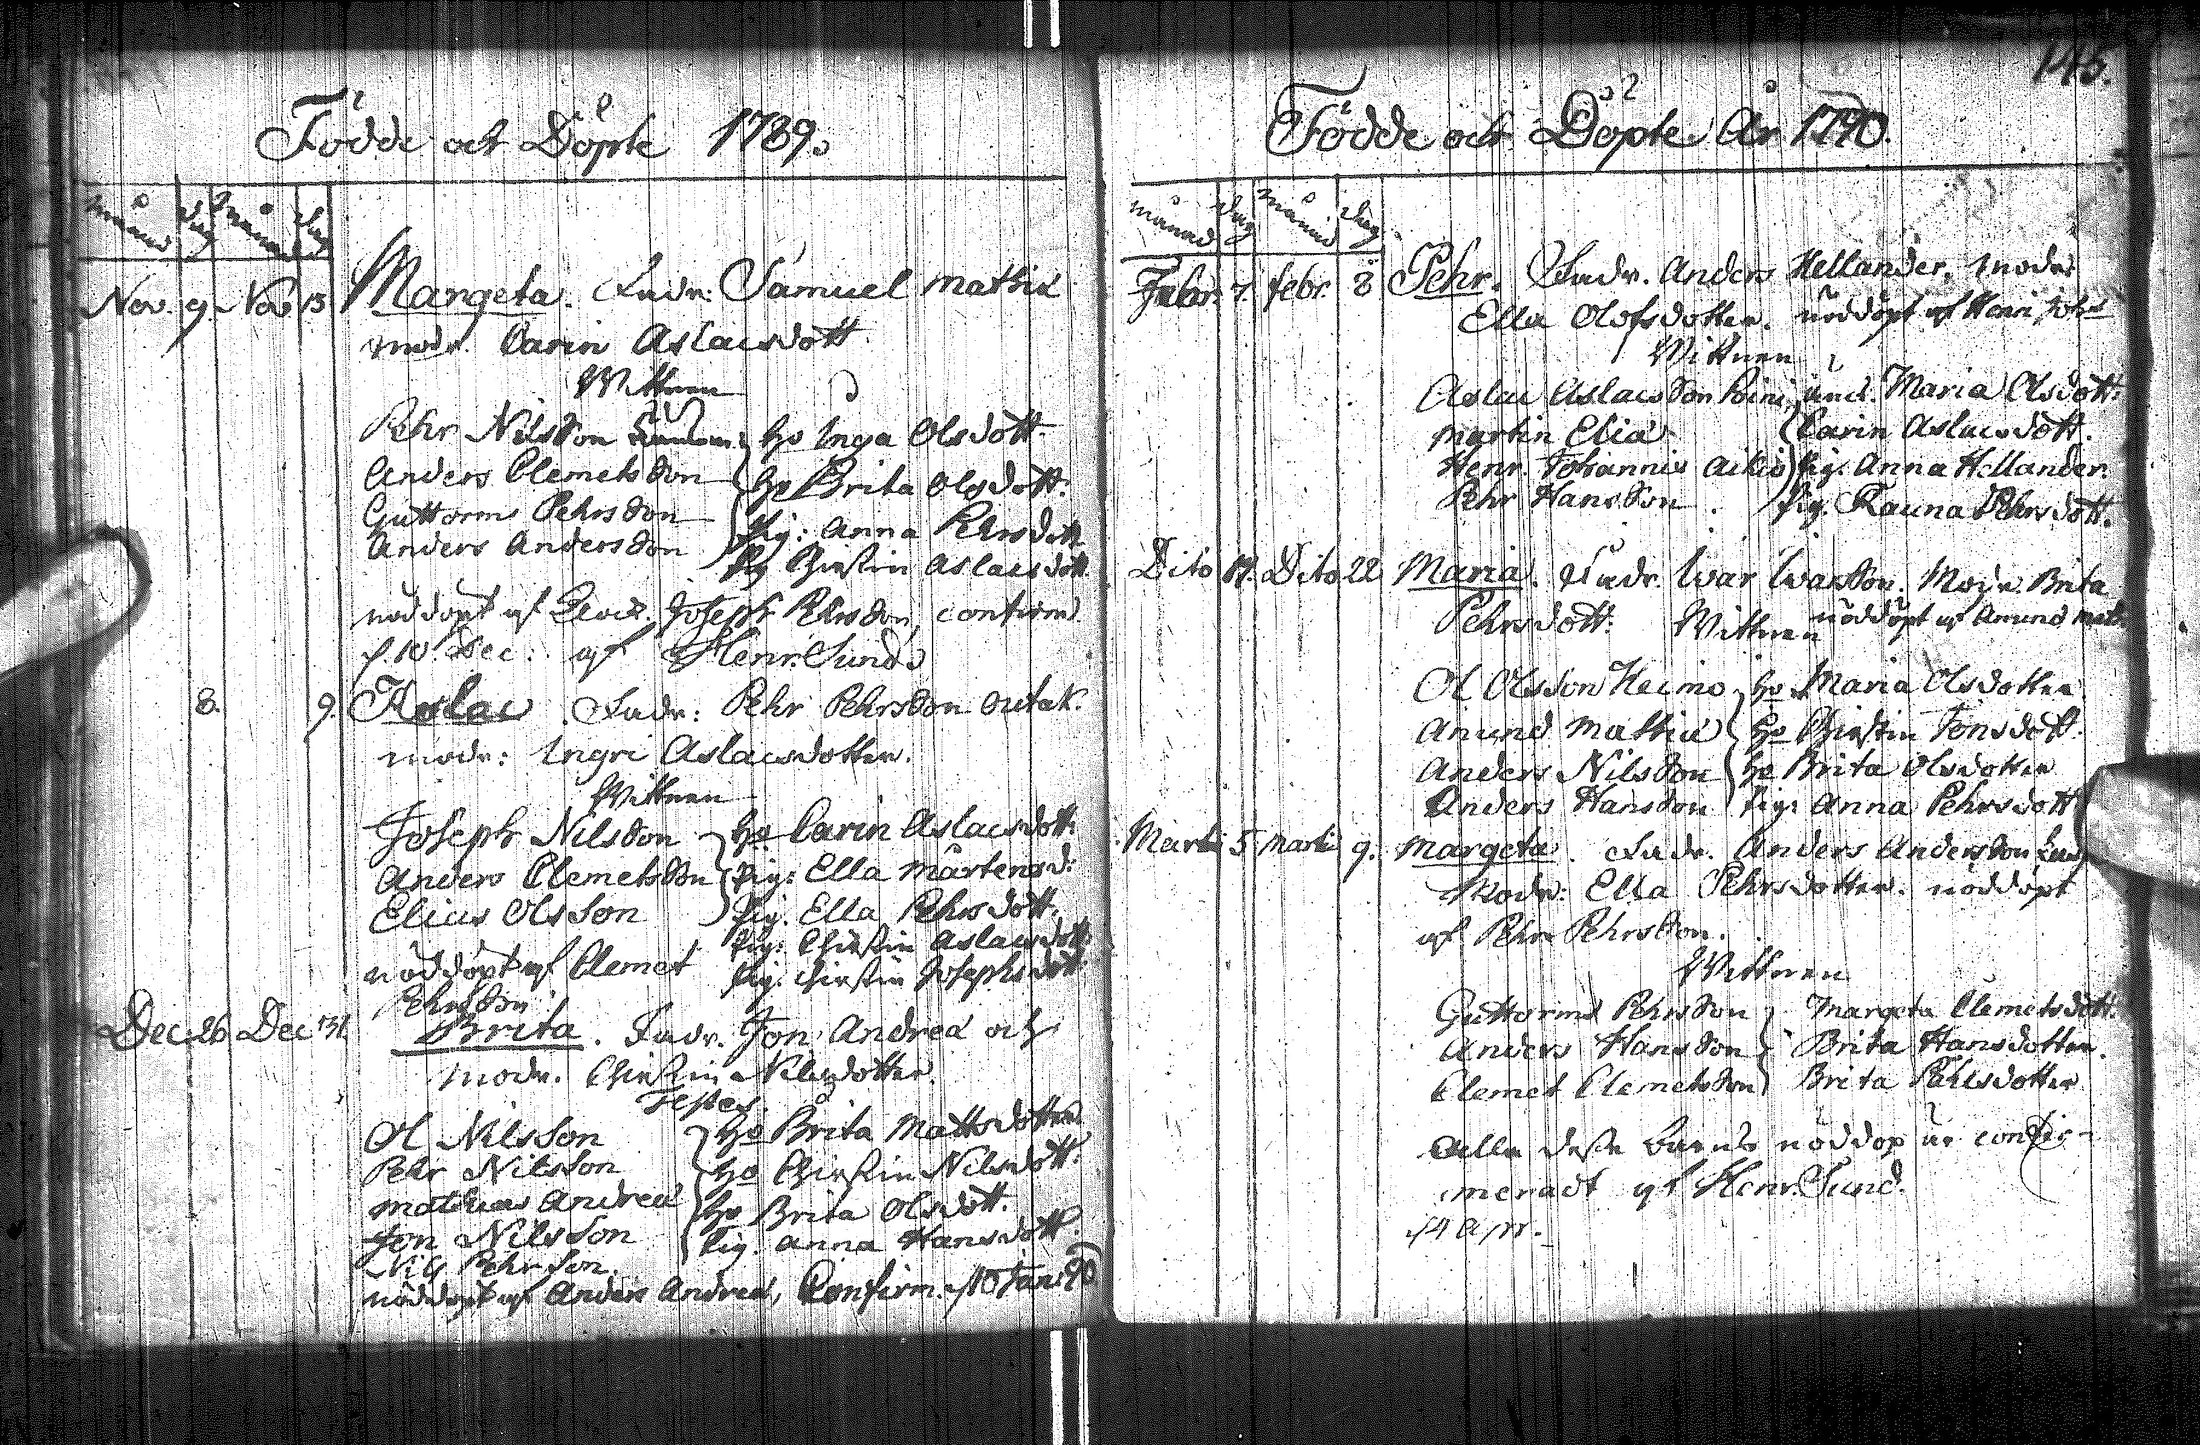 Födde och Döpte 1789.
månad dag månad dag
Nov. 9. Nov 15 Margeta. Fadr: Samuel Mathiæ
modr. Carin Aslacsdott
Wittnen
Pehr Nilsson hº Inga Olsdott.
Anders Clemetsson hº Brita Olsdott.
Guttorm Pehrsson pig: Anna Pehrsdott
Anders Andersson pig Christin Aslacsdott.
nöddöpt af Joseph Pehrsson, confirm.
d. 10 Dec. af Henr. Sund.
8. 9. Aslac. Fadr: Pehr Pehrsson
modr: Ingri Aslacsdotter.
Wittnen
Joseph Nilsson hº Carin Aslacsdott.
Anders Clemetsson pig: Ella Mårtensd:
Elias Olsson pig. Ella Pehrsdott.
pig: Christin Aslacsdott.
nöddöpt af Clemet pig. Christin Josephsdott
Pehrsson
Dec. 26 Dec 31 Brita. Fadr. Jon Andreæ och
modr. Christin Nilsdotter.
Testes.
Ol Nilsson hº Brita Mattsdotter
Pehr Nilsson hº Christin Nilsdott.
Mathias Andreæ hº Brita Olsdott.
Jon Nilsson pig. Anna Hansdott.
Nils Pehrson.
nöddöpt af Anders Andreæ, Confirm. d 10 Jan: 90
145.
Födde och Döpte År 1790.
månad dag månad dag
Febr. 7. febr. 8 Pehr. Fadr. Anders Hellander, modr
Ella Olofsdotter. nöddöpt af Henr. Joh:
Wittnen
Aslac Aslacsson Maria Olsdott.
Martin Eliæ Carin Aslacsdott.
Henr. Johannis Aikio pig. Anna Hellander.
Pehr Hansson. pig. Rauna Pehrsdott.
Dito 17. Dito 22 Maria. Fadr. Ivar Ivarsson. Modr. Brita
Pehrsdott. Wittnen nöddöpt af Amund Math.
Ol Olsson Keimo hº Maria Olsdotter.
Amund Mathiæ hº Christin Jonsdott.
Anders Nilsson hº Brita Olsdotter
Anders Hansson pig: Anna Pehrsdott
Martii 5 Martii 9. Margeta. Fadr. Anders Andersson
Modr: Ella Pehrsdotter. nöddöpt
af Pehr Pehrsson.
Wittnen
Guttorm Pehrsson Margeta Clemetsdott.
Anders Hansson Brita Hansdotter.
Clemet Clemetsson Brita Pehrsdotter
Alla desse barns nöddop är confir-
meradt af Henr. Sund.
d 4 apr.